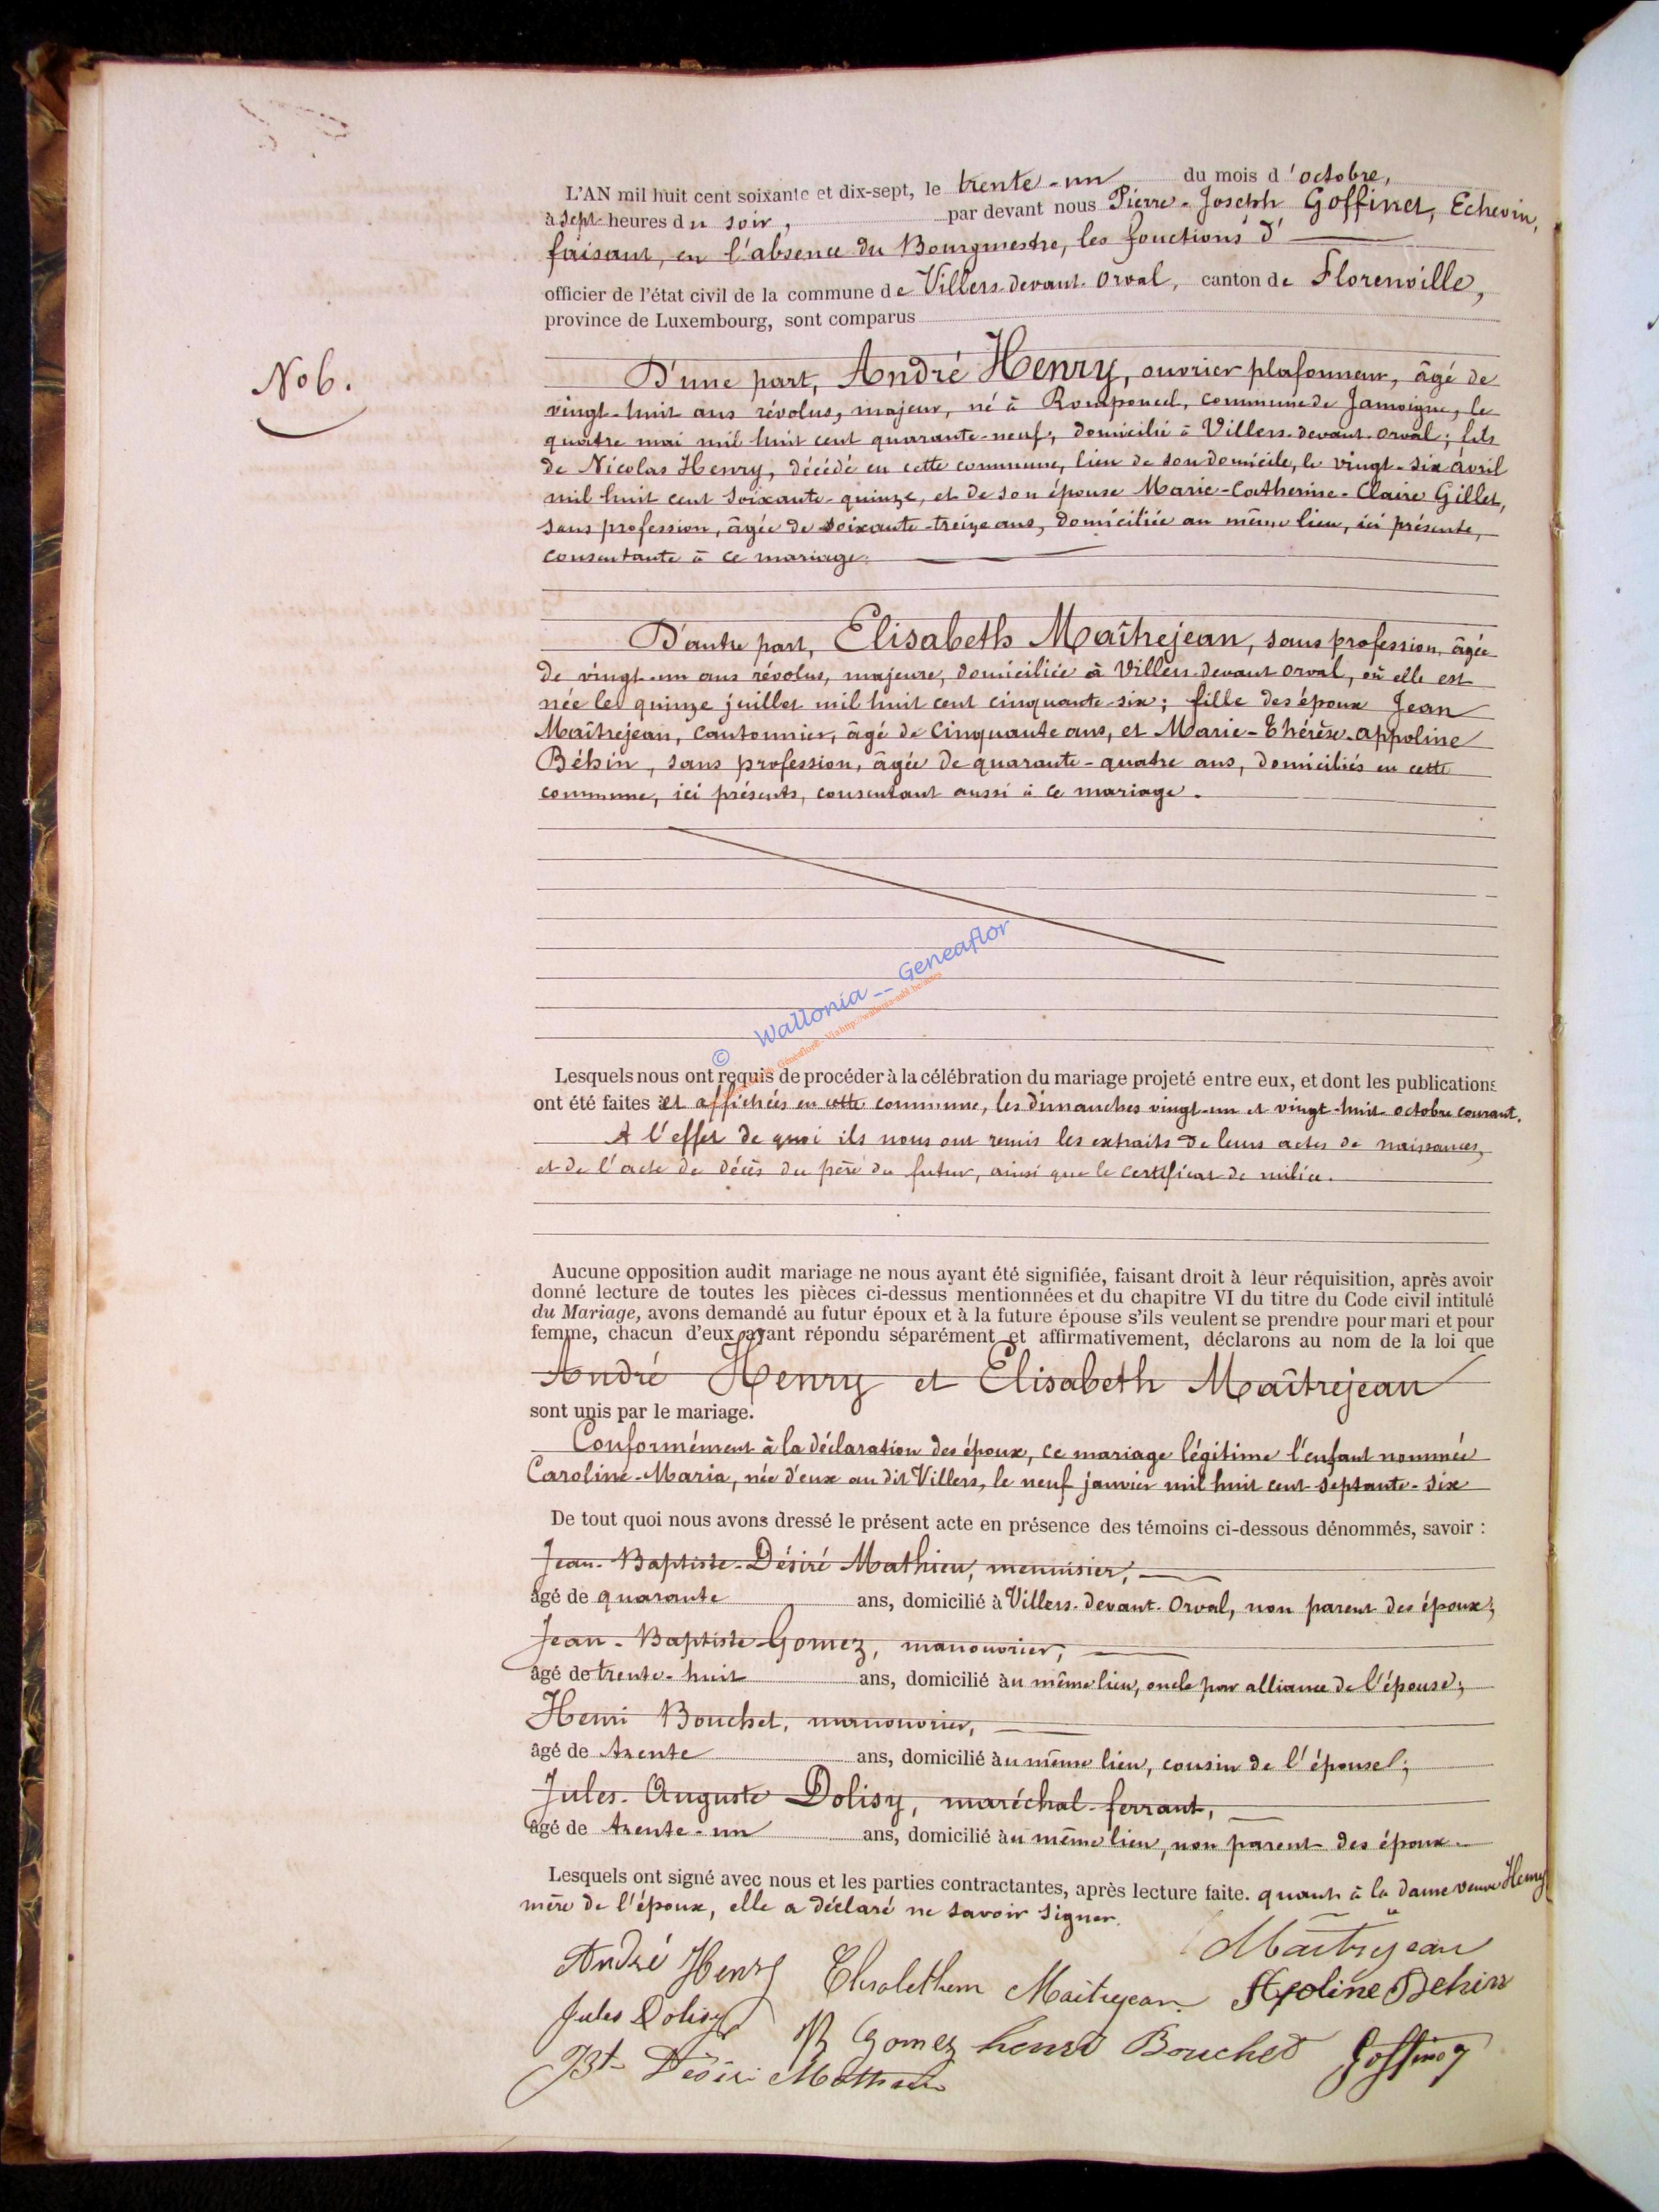 L'AN mil huit cent soixante et dix-sept, le trente-un du mois d'octobre,
à sept heures du soir, par devant nous Pierre-Joseph Goffinet, Echevin,
faisant, en l'absence du Bourgmestre, les fonctions d'
officier de l'état civil de la commune de Villers-devant-Orval, canton de Florenville,
province de Luxembourg, sont comparus
No 6.
D'une part, André Henry, ouvrier plafonneur, âgé de
vingt-huit ans révolus, majeur, né à Romponcel, commune de Jamoigne, le
quatre mai mil huit cent quarante-neuf, domicilié à Villers-devant-Orval; fils
de Nicolas Henry, décédé en cette commune, lieu de son domicile, le vingt-six avril
mil huit cent soixante-quinze, et de son épouse Marie-Catherine-Claire Gillet,
sans profession, âgée de soixante-treize ans, domiciliée au même lieu, ici présente,
consentante à ce mariage.
D'autre part, Elisabeth Maîtrejean, sans profession, âgée
de vingt-un ans révolus, majeure, domiciliée à Villers-devant-Orval, où elle est
née le quinze juillet mil huit cent cinquante-six; fille des époux Jean
Maîtrejean, Cantonnier, âgé de cinquante ans, et Marie-Thérèse-Appoline
Béhin, sans profession, âgée de quarante-quatre ans, domiciliés en cette
commune, ici présents, consentant aussi à ce mariage.
© Wallonia -- Geneaflor
Lesquels nous ont requis de procéder à la célébration du mariage projeté entre eux, et dont les publications
ont été faites et affichées en cette commune, les dimanches vingt-un et vingt-huit octobre courant.
A l'effet de quoi ils nous ont remis les extraits de leurs actes de naissances,
et de l'acte de décès du père du futur, ainsi que le certificat de milice.
Aucune opposition audit mariage ne nous ayant été signifiée, faisant droit à leur réquisition, après avoir
donné lecture de toutes les pièces ci-dessus mentionnées et du chapitre VI du titre du Code civil intitulé
du Mariage, avons demandé au futur époux et à la future épouse s'ils veulent se prendre pour mari et pour
femme, chacun d'eux ayant répondu séparément et affirmativement, déclarons au nom de la loi que
André Henry et Elisabeth Maîtrejean
sont unis par le mariage.
Conformément à la déclaration des époux, ce mariage légitime l'enfant nommée
Caroline-Maria, née d'eux au dit Villers, le neuf janvier mil huit cent septante-six
De tout quoi nous avons dressé le présent acte en présence des témoins ci-dessous dénommés, savoir :
Jean-Baptiste-Désiré Mathieu, menuisier,
âgé de quarante ans, domicilié à Villers-devant-Orval, non parent des époux;
Jean-Baptiste Gomez, manouvrier,
âgé de trente-huit ans, domicilié au même lieu, oncle par alliance de l'épouse;
Henri Bouchet, manouvrier,
âgé de trente ans, domicilié au même lieu, cousin de l'épouse;
Jules-Auguste Dolisy, maréchal-ferrant,
âgé de trente-un ans, domicilié au même lieu, non parent des époux.
Lesquels ont signé avec nous et les parties contractantes, après lecture faite. quant à la dame veuve Henry
mère de l'époux, elle a déclaré ne savoir signer.
Maitrejean
André Henry Maitrejean Apoline Behin
Jules Dolisy Gomez henri Bouchet Goffinet
Bt Désiré Mathieu